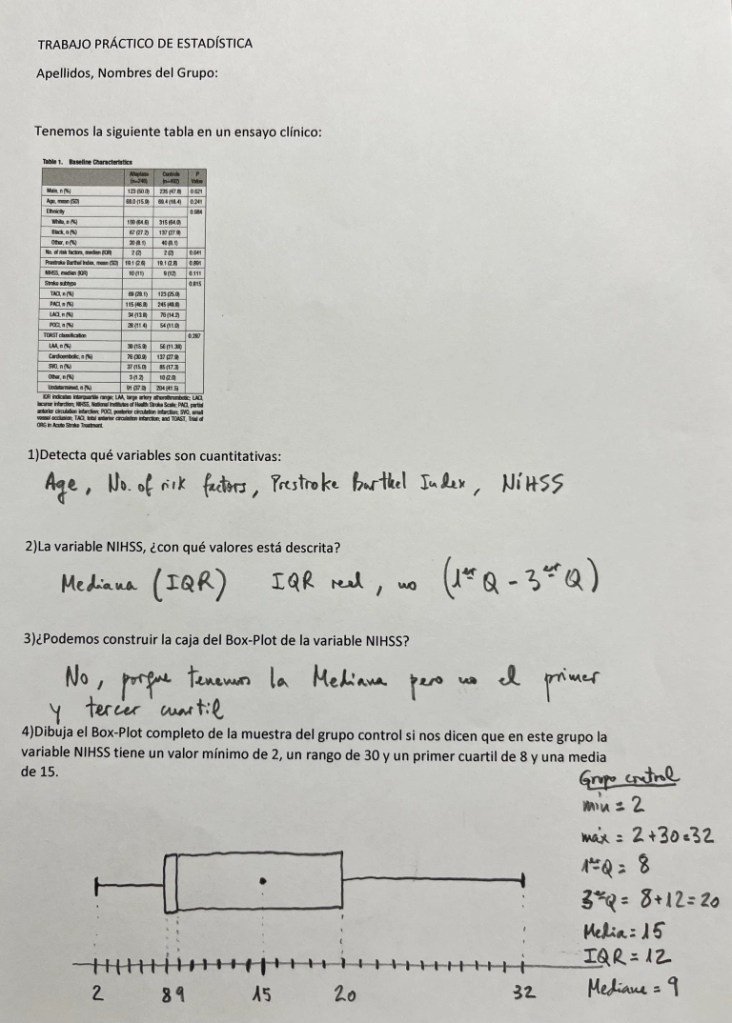 TRABAJO PRÁCTICO DE ESTADÍSTICA
Apellidos, Nombres del Grupo:
Tenemos la siguiente tabla en un ensayo clínico:
Table 1. Baseline Characteristics
P Value
Male, n (%) 123 (50.0) 0.521
Age, mean (SD) 0.241
Ethnicity
White, n (%) 315 (64.0)
Black, n (%) 67 (27.2) 137 (27.8)
Other, n (%)
No. of risk factors, median (IQR) 2 (2) 2 (2)
Prestroke Barthel Index, mean (SD) 19.1 (2.6) 19.1 (2.6)
NIHSS, median (IQR) 10 (11) 9 (12) 0.111
Stroke subtype 0.815
TACI, n (%) 123 (25.0)
PACI, n (%)
LACI, n (%) 34 (13.8) 70 (14.2)
POCI, n (%) 28 (11.4) 54 (11.0)
TOAST classification 0.267
LAA, n (%)
Cardioembolic, n (%) 137 (27.8)
SVO, n (%) 37 (15.0) 85 (17.3)
Other, n (%) 3 (1.2) 10 (2.0)
Undetermined, n (%) 204 (41.5)
IQR indicates interquartile range; LAA, large artery atherothrombotic; LACI,
lacunar infarction; NIHSS, National Institutes of Health Stroke Scale; PACI, partial
anterior circulation infarction; POCI, posterior circulation infarction; SVO, small
vessel occlusion; TACI, total anterior circulation infarction; and TOAST, Trial of
ORG in Acute Stroke Treatment.
1)Detecta qué variables son cuantitativas:
Age, No. of risk factors, Prestroke Barthel Index, NiHSS
2)La variable NIHSS, ¿con qué valores está descrita?
Mediana (IQR) IQR real, no (1er Q - 3er Q)
3)¿Podemos construir la caja del Box-Plot de la variable NIHSS?
No, porque tenemos la Mediana pero no el primer
y tercer cuartil
4)Dibuja el Box-Plot completo de la muestra del grupo control si nos dicen que en este grupo la
variable NIHSS tiene un valor mínimo de 2, un rango de 30 y un primer cuartil de 8 y una media
de 15.
Grupo control
min = 2
máx = 2+30=32
1er Q = 8
3er Q = 8+12=20
Media = 15
IQR = 12
Mediana = 9
2 8 9 15 20 32